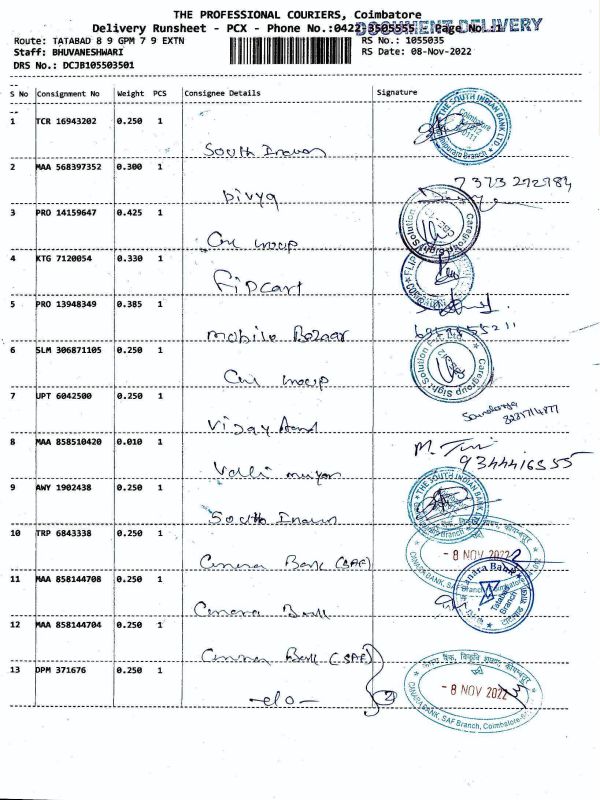 THE PROFESSIONAL COURIERS, Coimbatore
DOCUMENT DELIVERY
Delivery Runsheet - PCX - Phone No.:0422 3505555 Page No.:1
Route: TATABAD 8 9 GPM 7 9 EXTN RS No.: 1055035
Staff: BHUVANESHWARI RS Date: 08-Nov-2022
DRS No.: DCJB105503501
S No Consignment No Weight PCS Consignee Details Signature
1 TCR 16943202 0.250 1
THE SOUTH INDIAN BANK LTD
Coimbatore
Branch
South Indian
2 MAA 568397352 0.300 1
7373272984
Divya
3 PRO 14159647 0.425 1
Caregroup Sight Solution
Care group
4 KTG 7120054 0.330 1
Flipcart
5 PRO 13948349 0.385 1
Mobile Bazaar
6 SLM 306871105 0.250 1
Caregroup Sight Solution Pvt. Ltd.
Care group
7 UPT 6042500 0.250 1
Vijay Anand
8 MAA 858510420 0.010 1
9344416555
Valli
9 AWY 1902438 0.250 1
THE SOUTH INDIAN BANK LTD
South Indian
10 TRP 6843338 0.250 1
- 8 NOV 2022
CANARA BANK, SAF Branch, Coimbatore
Canara Bank (SAF)
11 MAA 858144708 0.250 1
Canara Bank
Tatabad
Branch
केनरा बैंक
Canara Bank
12 MAA 858144704 0.250 1
Canara Bank (SAF)
13 DPM 371676 0.250 1
- 8 NOV 2022
CANARA BANK, SAF Branch, Coimbatore
2